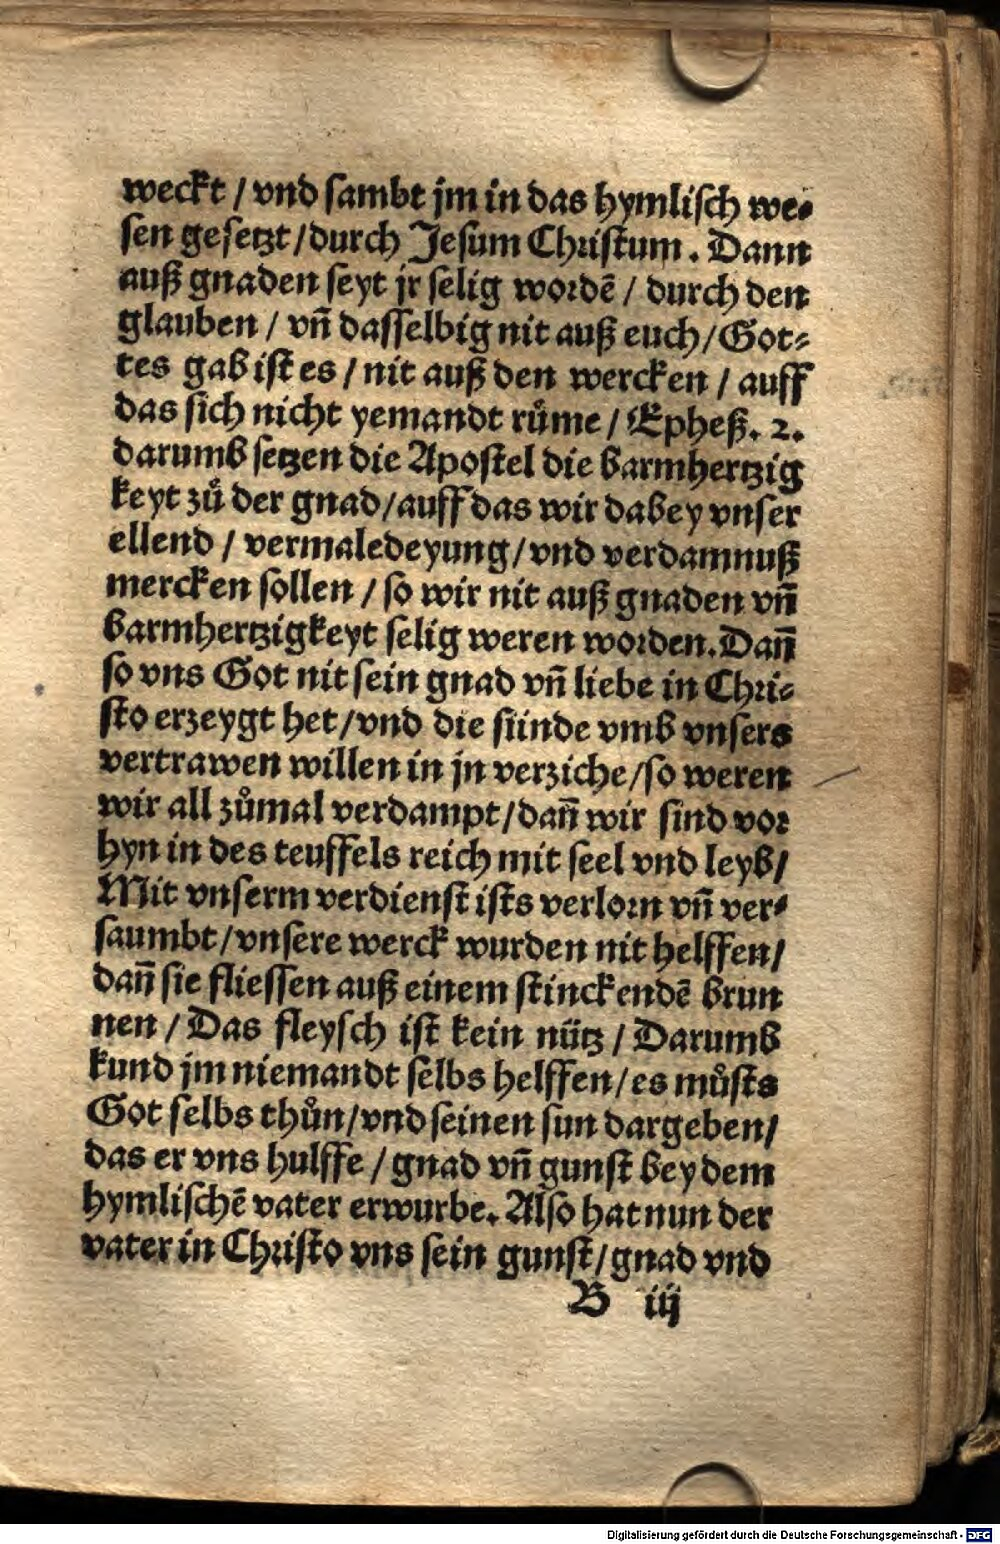 weckt / vnd sambt jm in das hymlisch we⸗
sen gesetzt / durch Jesum Christum. Dann
auß gnaden seyt jr selig wordẽ / durch den
glauben / vñ dasselbig nit auß euch / Got⸗
tes gab ist es / nit auß den wercken / auff
das sich nicht yemandt růme / Epheß. 2.
darumb setzen die Apostel die barmhertzig
keyt zů der gnad / auff das wir dabey vnser
ellend / vermaledeyung / vnd verdamnuß
mercken sollen / so wir nit auß gnaden vñ
barmhertzigkeyt selig weren worden. Dañ
so vns Got nit sein gnad vñ liebe in Chri⸗
sto erzeygt het / vnd die sünde vmb vnsers
vertrawen willen in jn verziche / so weren
wir all zůmal verdampt / dañ wir sind vor
hyn in des teuffels reich mit seel vnd leyb /
Mit vnserm verdienst ists verlorn vñ ver⸗
saumbt / vnsere werck wurden nit helffen /
dañ sie fliessen auß einem stinckendẽ brun
nen / Das fleysch ist kein nütz / Darumb
kund jm niemandt selbs helffen / es můsts
Got selbs thůn / vnd seinen sun dargeben /
das er vns hulffe / gnad vñ gunst bey dem
hymlischẽ vater erwurbe. Also hat nun der
vater in Christo vns sein gunst / gnad vnd
B iij
Digitalisierung gefördert durch die Deutsche Forschungsgemeinschaft - DFG